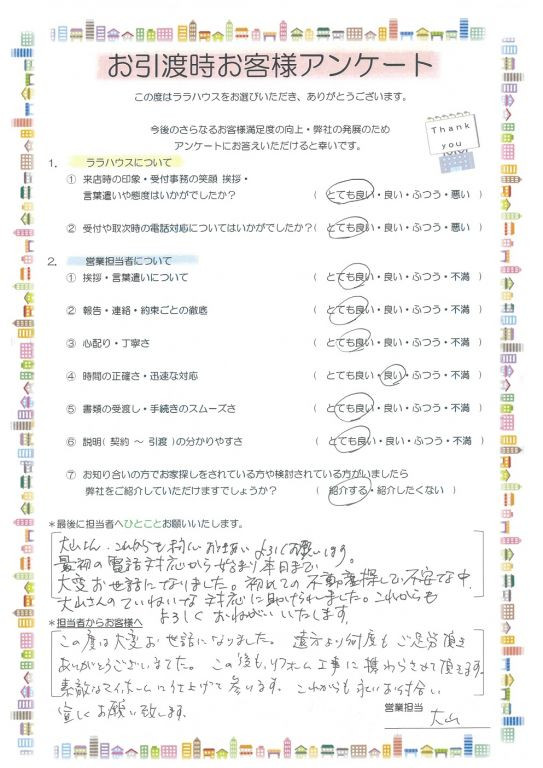 お引渡時お客様アンケート
この度はララハウスをお選びいただき、ありがとうございます。
今後のさらなるお客様満足度の向上・弊社の発展のため
アンケートにお答えいただけると幸いです。
Thank
you
1. ララハウスについて
① 来店時の印象・受付事務の笑顔 挨拶・
言葉遣いや態度はいかがでしたか? ( とても良い・良い・ふつう・悪い )
② 受付や取次時の電話対応についてはいかがでしたか?( とても良い・良い・ふつう・悪い )
2. 営業担当者について
① 挨拶・言葉遣いについて ( とても良い・良い・ふつう・不満 )
② 報告・連絡・約束ごとの徹底 ( とても良い・良い・ふつう・不満 )
③ 心配り・丁寧さ ( とても良い・良い・ふつう・不満 )
④ 時間の正確さ・迅速な対応 ( とても良い・良い・ふつう・不満 )
⑤ 書類の受渡し・手続きのスムーズさ ( とても良い・良い・ふつう・不満 )
⑥ 説明( 契約 ~ 引渡 )の分かりやすさ ( とても良い・良い・ふつう・不満 )
⑦ お知り合いの方でお家探しをされている方や検討されている方がいましたら
弊社をご紹介していただけますでしょうか? ( 紹介する・紹介したくない )
*最後に担当者へひとことお願いいたします。
大山さん、これからも よろしくお願いします。
最初の電話対応から始まり本日まで
大変お世話になりました。初めての不動産探しで不安な中、
大山さんのていねいな対応に助けられました。これからも
よろしくおねがいいたします。
*担当者からお客様へ
この度は大変お世話になりました。遠方より何度もご足労頂き
ありがとうございました。この後も、リフォーム工事に携わらさせて頂きます。
素敵なマイホームに仕上げて参ります。これからも永いお付合い
宜しくお願い致します。
営業担当 大山